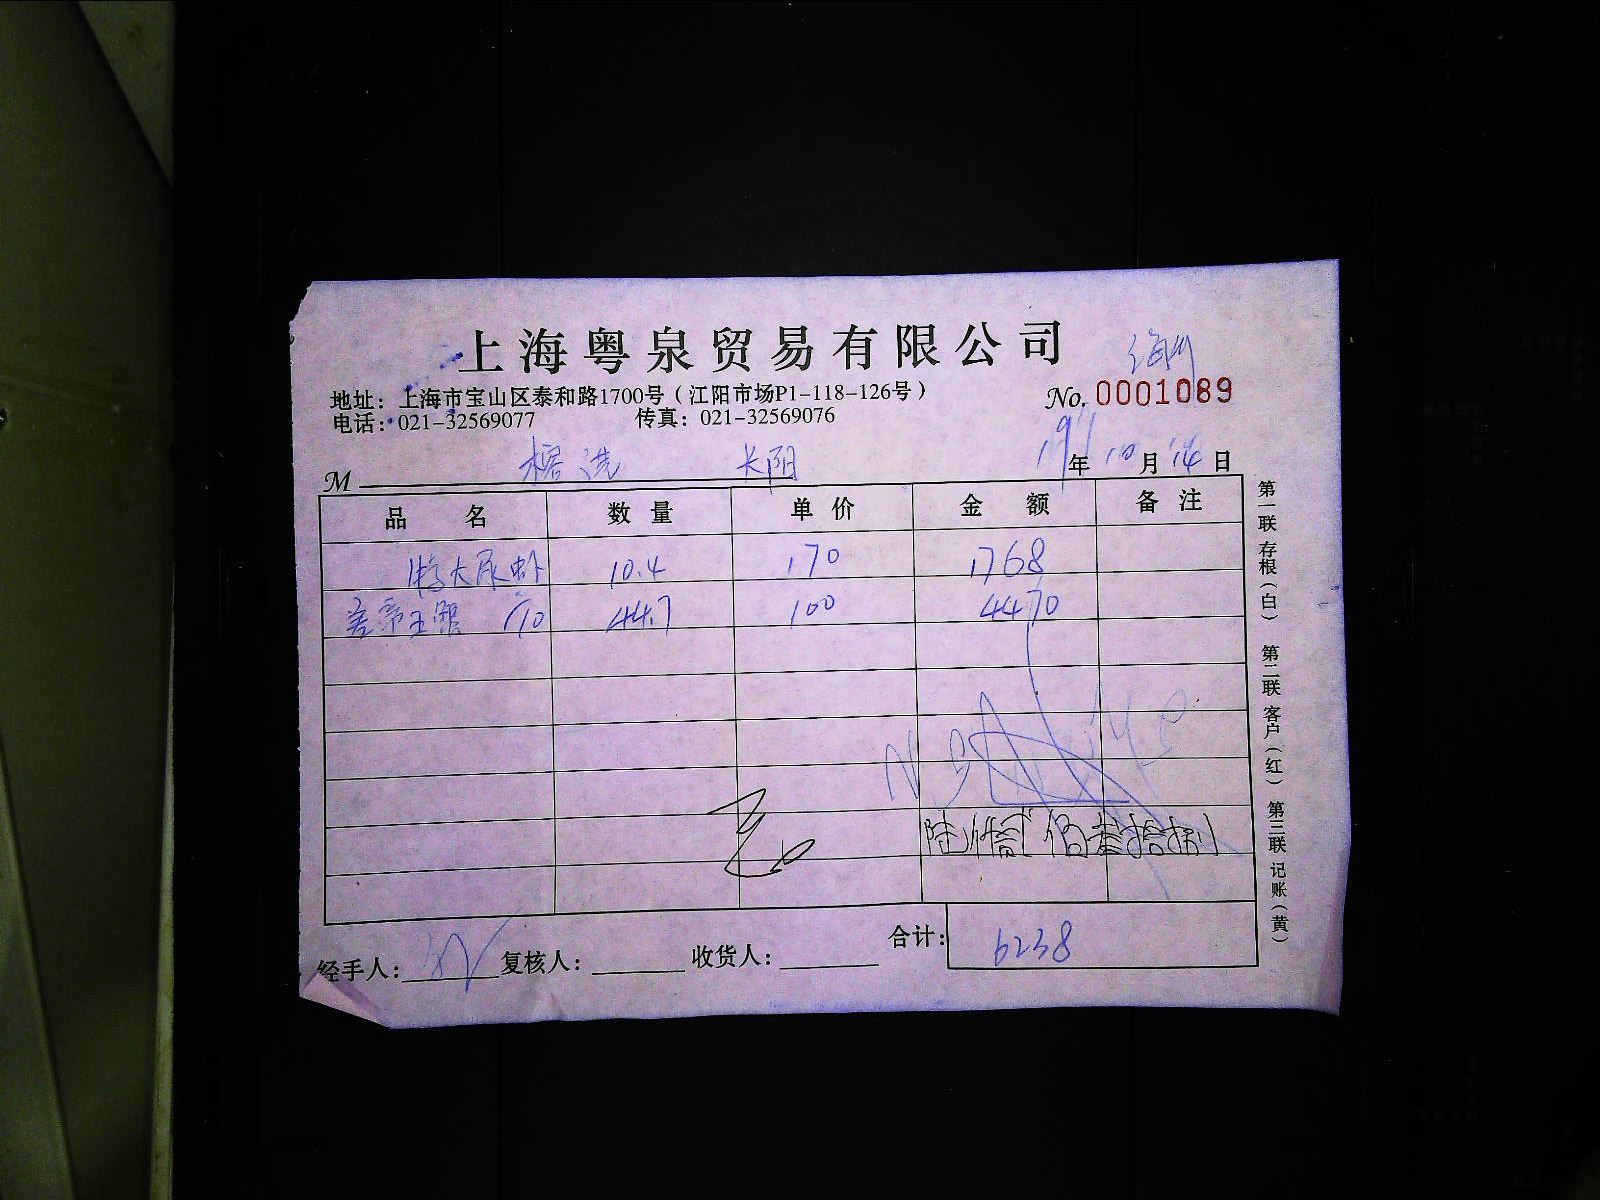 上海粤泉贸易有限公司
地址：上海市宝山区泰和路1700号（江阳市场P1-118-126号）
No. 0001089
电话：021-32569077 传真：021-32569076
M 长阳 年 10 月 14 日
品名 数量 单价 金额 备注
特大尿虾 10.4 170 1768
帝王 44.7 100 4470
陆仟贰佰叁拾捌
合计： 6238
经手人： 复核人： 收货人：
第一联 存根（白） 第二联 客户（红） 第三联 记账（黄）